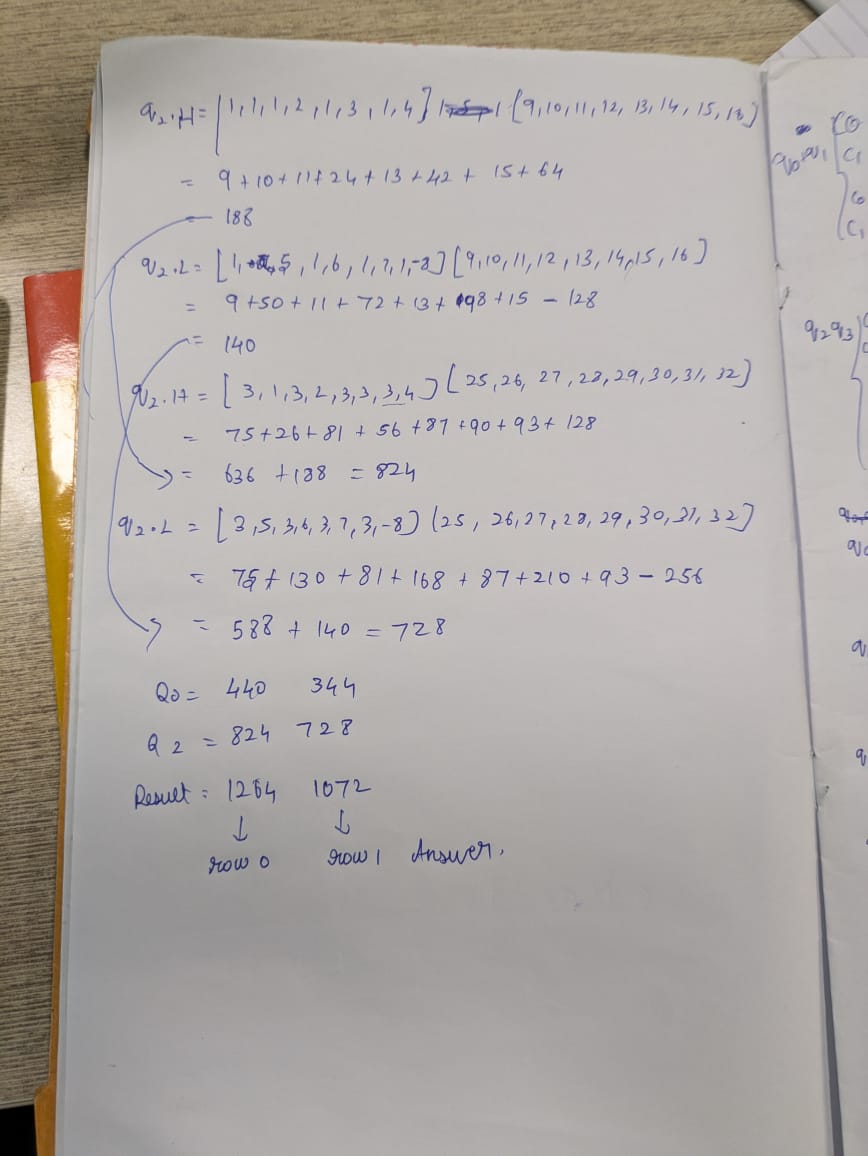 q₂.H = [1,1,1,2,1,3,1,4] [9,10,11,12,13,14,15,16]
= 9+10+11+24+13+42+15+64
= 188
q₂.L = [1,5,1,6,1,7,1,-8] [9,10,11,12,13,14,15,16]
= 9+50+11+72+13+98+15-128
= 140
q₂.H = [3,1,3,2,3,3,3,4] [25,26,27,28,29,30,31,32]
= 75+26+81+56+87+90+93+128
= 636 + 188 = 824
q₂.L = [3,5,3,6,3,7,3,-8] [25,26,27,28,29,30,31,32]
= 75+130+81+168+87+210+93-256
= 588 + 140 = 728
Q0 = 440 344
Q2 = 824 728
Result = 1264 1072
↓ ↓
row 0 row 1 Answer.
q₀q₁
C0
C1
C1
q₂q₃